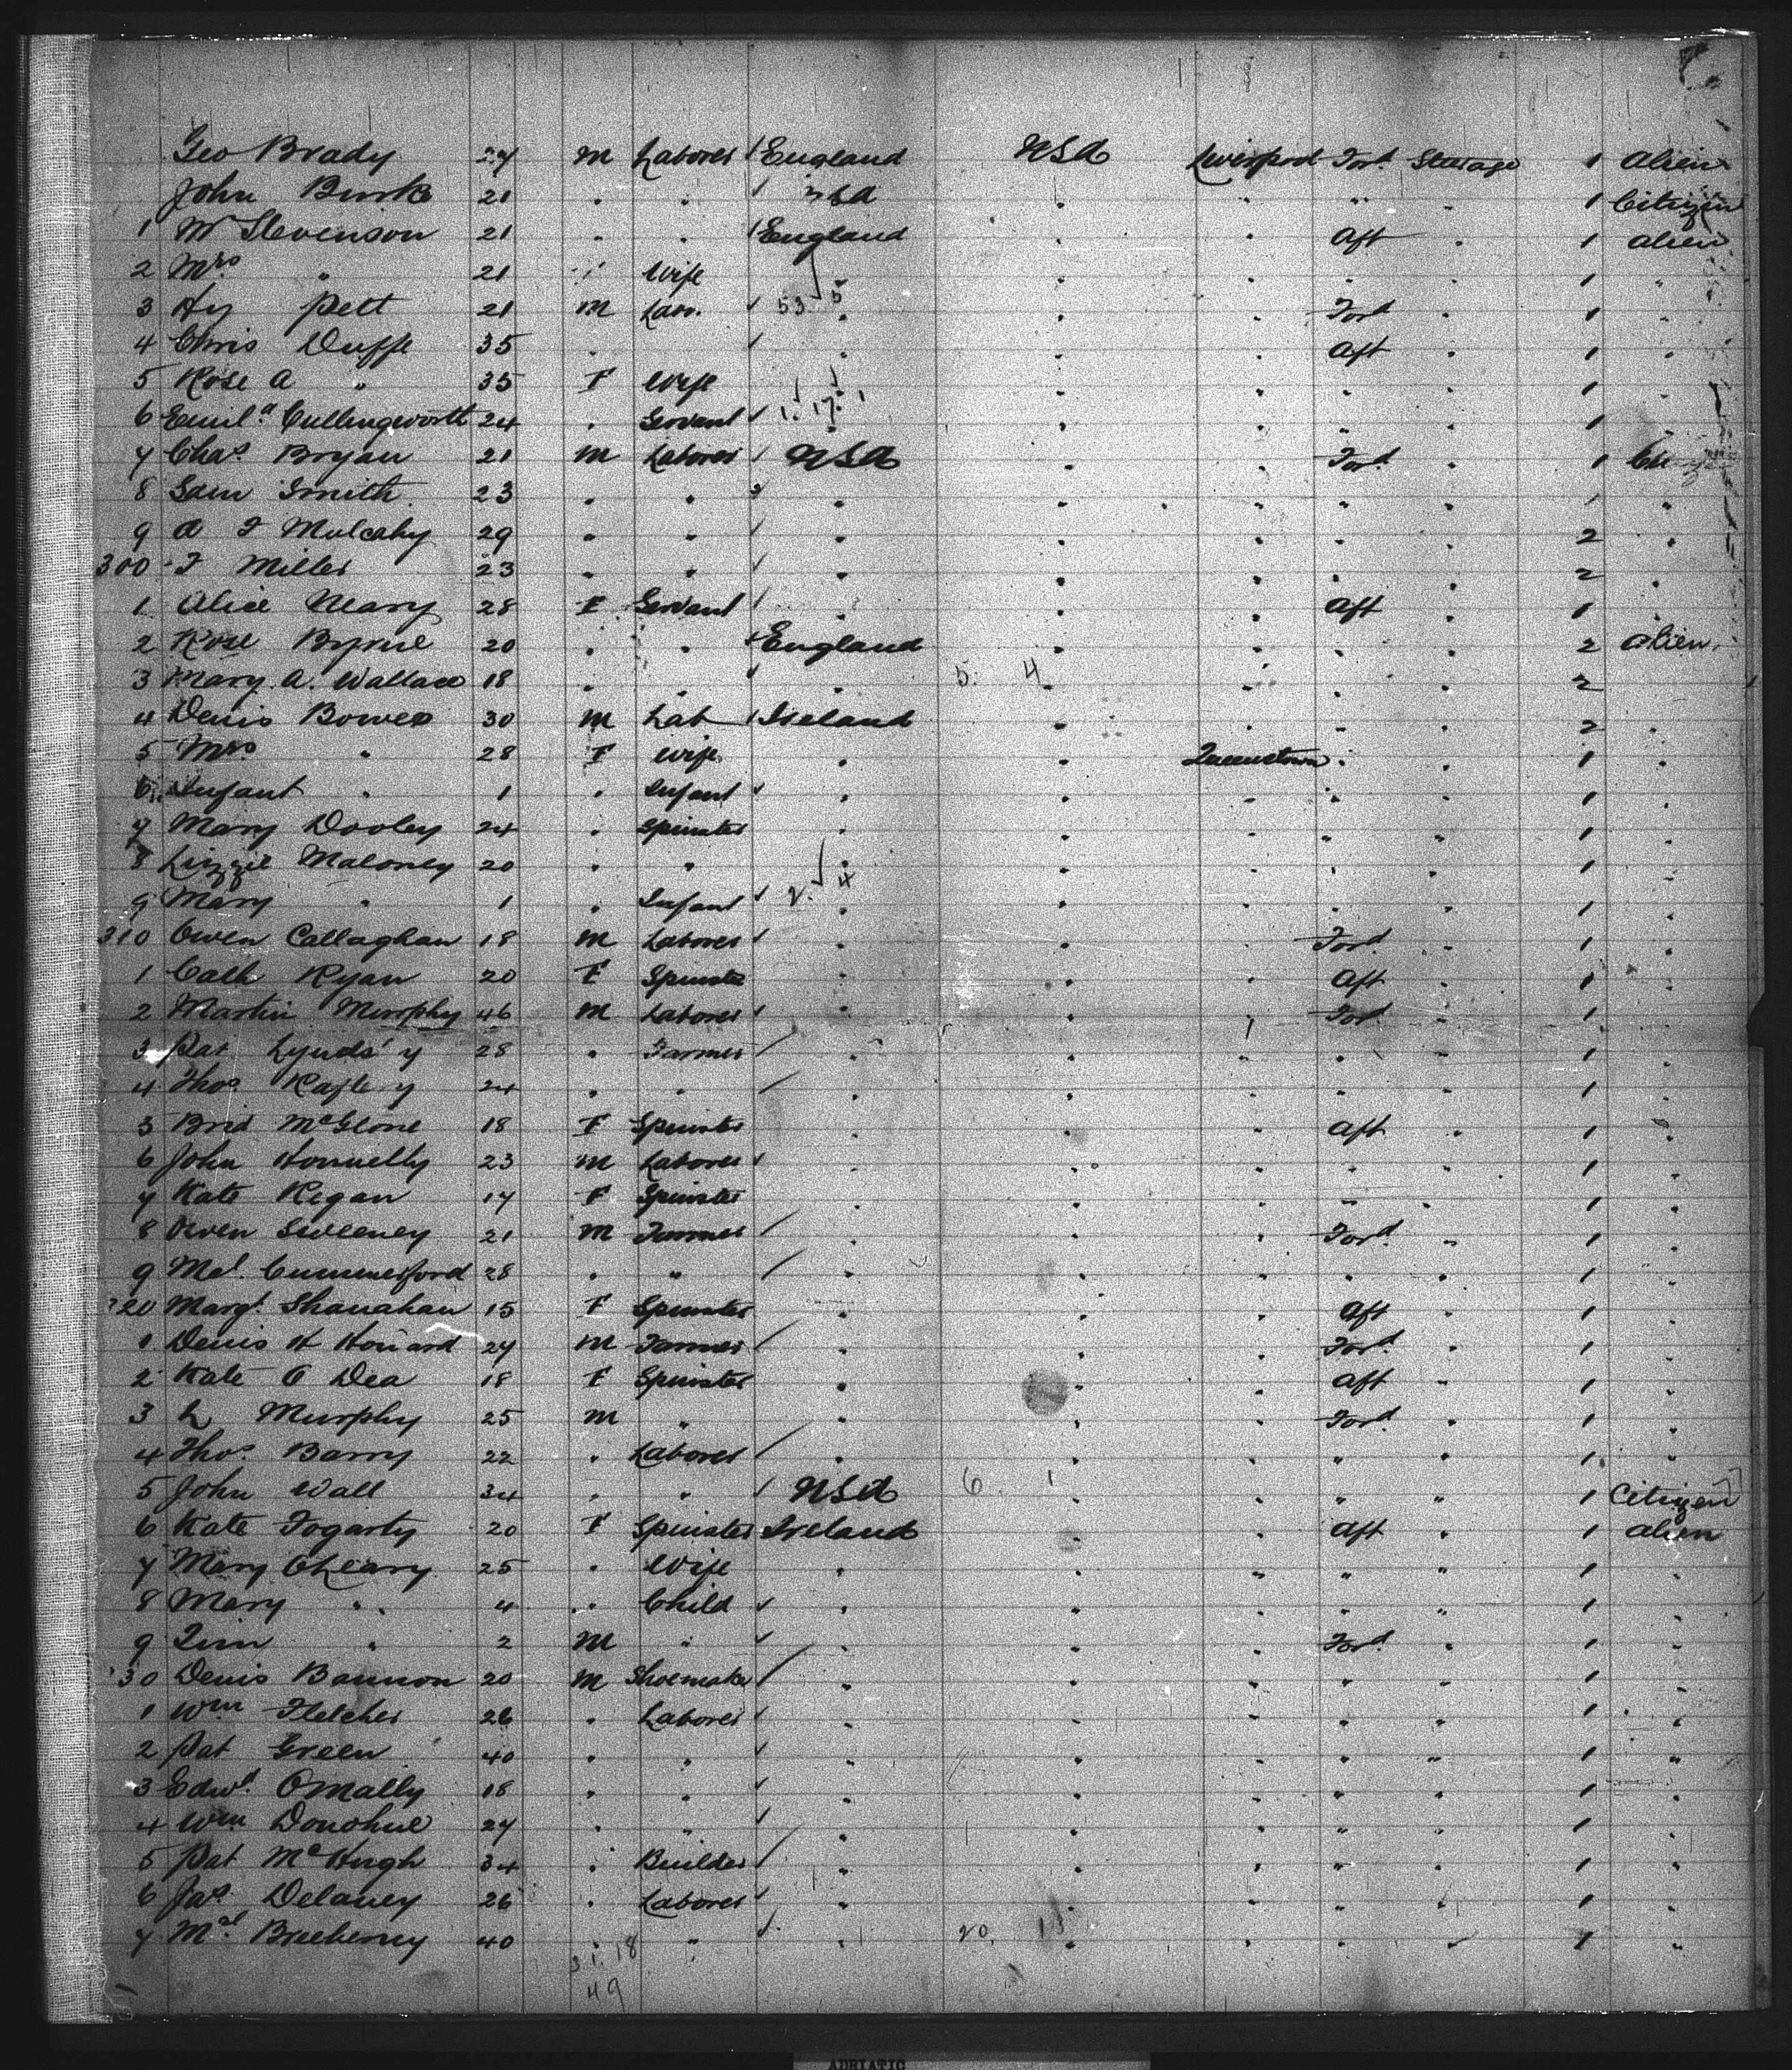 Geo Brady 27 m Laborer England USA Liverpool Ford Steerage 1 Alien
John Burke 21 " " USA " " " " 1 Citizen
1 Mr Stevenson 21 " " England " " Aft " 1 alien
2 Mrs " 21 " Wife " " " " " 1 "
3 Hy Pett 21 m Labr. " " " Ford " 1 "
4 Chris Duffe 35 " " " " Aft " 1 "
5 Rose A " 35 F Wife " " " " " 1 "
6 Cullingworth 24 " Servant " " " " " 1 "
7 Chas. Bryan 21 m Laborer USA " " Ford " 1
8 Sam Smith 23 " " " " " " " 1 "
9 A F Mulcahy 29 " " " " " " " 2 "
300 F Miller 23 " " " " " " " 2 "
1 Alice Neary 28 F Servant " " " Aft " 1
2 Rose Byrne 20 " " England " " " " 2 alien
3 Mary A. Wallace 18 " " " " " " " 2
4 Denis Bower 30 m Lab Ireland " " " " 2 "
5 Mrs " 28 F Wife " " Queenstown " " 1 "
6 Infant " 1 " Infant " " " " " 1 "
7 Mary Dooley 24 " Spinster " " " " " 1 "
8 Lizzie Maloney 20 " " " " " " " 1 "
9 Mary " 1 " Infant " " " " " 1 "
310 Owen Callaghan 18 m Laborer " " " Ford " 1 "
1 Cath Ryan 20 F Spinster " " " Aft " 1 "
2 Martin Murphy 46 m Laborer " " " Ford " 1 "
3 Pat 28 " Farmer " " " " " 1 "
4 Thos 24 " " " " " " " 1 "
5 Brid McGlone 18 F Spinster " " " Aft " 1 "
6 John Konnelly 23 m Laborer " " " " " 1 "
7 Kate Regan 17 F Spinster " " " " " 1 "
8 Owen Sweeney 21 m Farmer " " " Ford " 1 "
9 Ml. Cummerford 28 " " " " " " " 1 "
320 Margt. Shanahan 15 F Spinster " " " Aft " 1 "
1 Denis H Howard 27 m Farmer " " " Ford " 1 "
2 Kate O Dea 18 F Spinster " " " Aft " 1 "
3 L Murphy 25 m " " " " Ford " 1 "
4 Thos. Barry 22 " Laborer " " " " " 1 "
5 John Wall 34 " " USA " " " " 1 Citizen
6 Kate Fogarty 20 F Spinster Ireland " " Aft " 1 alien
7 Mary OLeary 25 " Wife " " " " " 1 "
8 Mary " 4 " Child " " " " " 1 "
9 Tim " 2 m " " " " Ford " 1 "
30 Denis Bannon 20 m Shoemaker " " " " " 1 "
1 Wm Fletcher 26 " Laborer " " " " " 1 "
2 Pat Green 40 " " " " " " " 1 "
3 Edwd. OMally 18 " " " " " " " 1 "
4 Wm Donohue 27 " " " " " " " 1 "
5 Pat McHugh 34 " Builder " " " " " 1 "
6 Jas. Delaney 26 " Laborer " " " " " 1 "
7 Ml. 40 " " " " " " " 1 "
31. 18
49
ADRIATIC